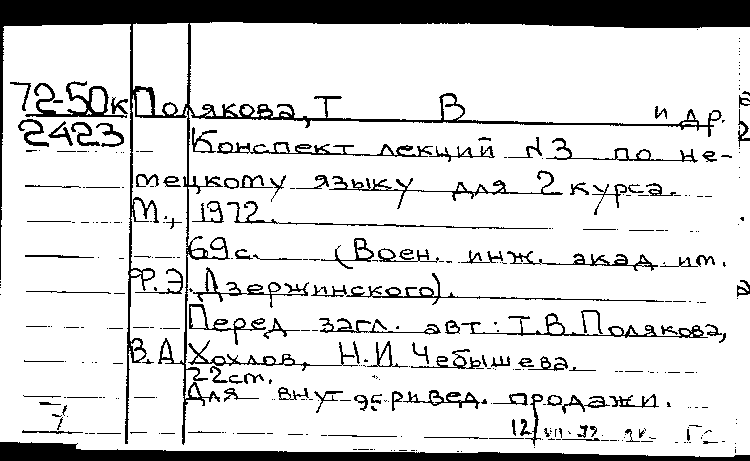 72-50к Полякова, Т В и др.
2423 Конспект лекций №3 по не-
мецкому языку для 2 курса.
М., 1972.
69с. (Воен. инж. акад им.
Ф.Э. Дзержинского).
Перед загл. авт: Т.В. Полякова,
В.А. Хохлов, Н.И. Чебышева.
22см.
Для внут 95 ривед. продажи.
12/VII-72 ГС